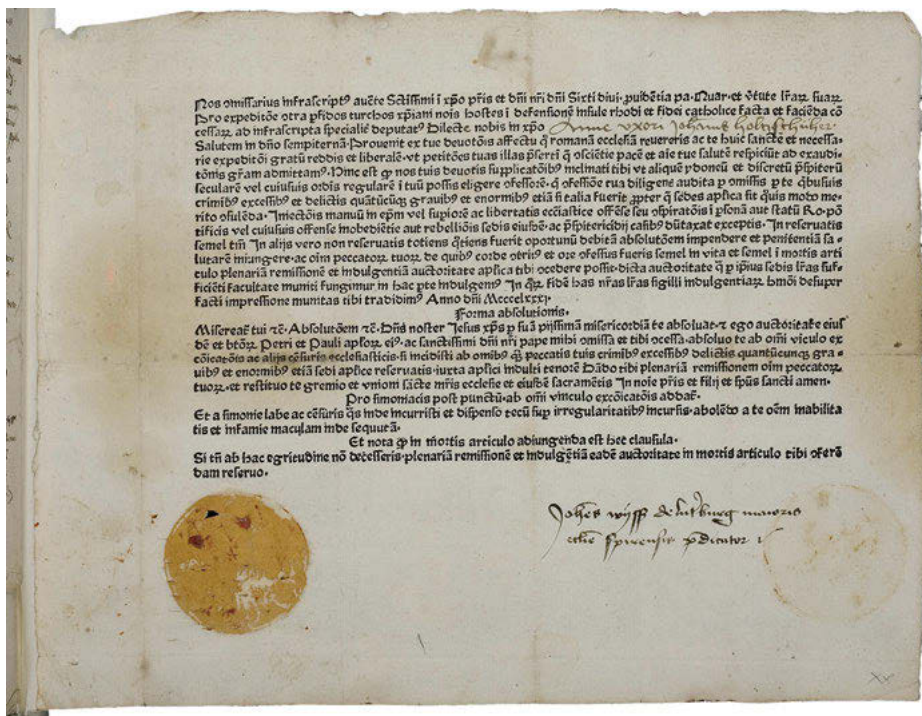 Nos ɔmissarius infrascriptꝰ auc̄te Sctissimi ī xp̄o pr̄is et dn̄i nr̄i dn̄i Sixti diui ꝓuidētia pa· Quar· et v̄tute lr̄aꝝ suaꝝ
Pro expeditōe ɔtra ꝑfidos turchos xp̄iani nōis hostes ī defensionē insule rhodi et fidei catholice facta et faciēda cō
cessaꝝ ad infrascripta specialiē deputatꝰ Dilecte nobis in xp̄o Anne vxori Johanis holtzschuher
Salutem in dn̄o sempiternā· Prouenit ex tue deuotōis affectu ꝙ romanā eccl̄iā reuereris ac te huic sancte et necessa-
rie expeditōi gratū reddis et liberalē· vt petitōes tuas illas p̄serti q̄ ɔsciētie pacē et aīe tue salutē respiciūt ad exaudi-
tōnis gr̄am admittam· Hinc est ꝙ nos tuis deuotis supplicatōibꝰ inclinati tibi vt aliquē ydoneū et discretū p̄sbiterū
seculare vel cuiusuis ordīs regularē ī tuū possis eligere ɔfessorē· q̄ ɔfessiōe tua diligēnt audita ꝓ ɔmissis ꝑ te q̄busuis
crimibꝰ excessibꝰ et delictis quātūcūqꝫ grauibꝰ et enormibꝰ etiā si talia fuerit ꝓpter q̄ sedes aplica sit q̄uis modo me-
rito ɔsulēda· Iniectōis manuū in ep̄m vel supiorē ac libertatis eccl̄iastice offēse seu ɔspiratōis ī ꝑsonā aut statū Ro· pō
tificis vel cuiusuis offense inobediētie aut rebelliōis sedis eiusdē· ac p̄sbitericidij casibꝰ dūtaxat exceptis· In reseruatis
semel tm̄ In alijs vero non reseruatis totiens q̄tiens fuerit oportunū debitā absolutōem impendere et penitentiā sa-
lutarē iniungere· ac oīm peccatoꝝ tuoꝝ de quibꝰ corde ɔtritꝰ et ore ɔfessus fueris semel in vita et semel ī mortis arti
culo plenariā remissionē et indulgentiā auctoritate aplica tibi ɔcedere possit· dicta auctoritate q̄ ꝑ ipiꝰ sedis lr̄as suf-
ficiēti facultate muniti fungimur in hac ꝑte indulgem̄ꝰ In qꝝ fidē has nr̄as lr̄as sigilli indulgentiaꝝ hmōi desuper
facti impressione munitas tibi tradidimꝰ Anno dn̄i Mcccclxxxi·
Forma absolutionis·
Misereat̄ tui ⁊c̄· Absolutōem ⁊c̄· Dn̄s noster Jesus xp̄s ꝑ suā pijssimā misericordiā te absoluat· ⁊ ego auctoritate eius
dē et btōꝝ Petri et Pauli aploꝝ eiꝰ· ac sanctissimi dn̄i nr̄i pape mihi ɔmissa et tibi ɔcessa· absoluo te ab omī viculo ex
cōicatōis ac alijs cēsuris ecclesiasticis· si incidisti ab omibꝰ q̄ꝫ peccatis tuis crimibꝰ excessibꝰ delictis quantūcunqꝫ gra-
uibꝰ et enormibꝰ etiā sedi aplice reseruatis· iuxta aplici indulti tenorē Dādo tibi plenariā remissionem oīm peccatoꝝ
tuoꝝ· et restituo te gremio et vnioni sācte mr̄is ecclesie et eiusdē sacramētis In noīe pr̄is et filij et spūs sancti amen·
Pro simoniacis post punctū· ab omī vinculo excōicatōis addat̄·
Et a simonie labe ac cēsuris q̄s inde incurristi et dispenso tecū suꝑ irregularitatibꝰ incursis· abolēdo a te oēm inabilita
tis et infamie maculam inde sequutā·
Et nota ꝙ in mortis articulo adiungenda est hec clausula·
Si tn̄ ab hac egritudine nō decesseris· plenariā remissionē et indulgētiā eadē auctoritate in mortis articulo tibi ɔferē
dam reseruo·
Joh̄es wyss de maioris
ecc̄lie spirensis p̄dicator
XX